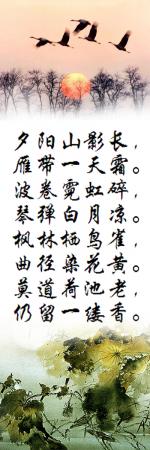 夕阳山影长，
雁带一天霜。
波卷霓虹碎，
琴弹白月凉。
枫林栖鸟雀，
曲径染花黄。
莫道荷池老，
仍留一缕香。